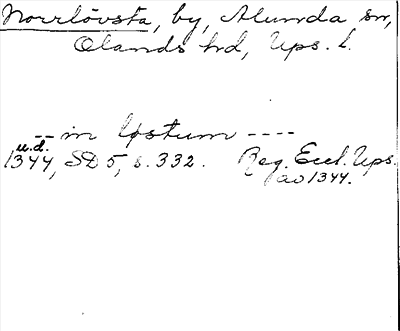 Norrlövsta, by, Alunda sn,
Olands hd, Ups. l.
-- in løstum ----
u.d.
1344, SD 5, s. 332. Reg. Eccl. Ups.
av 1344.